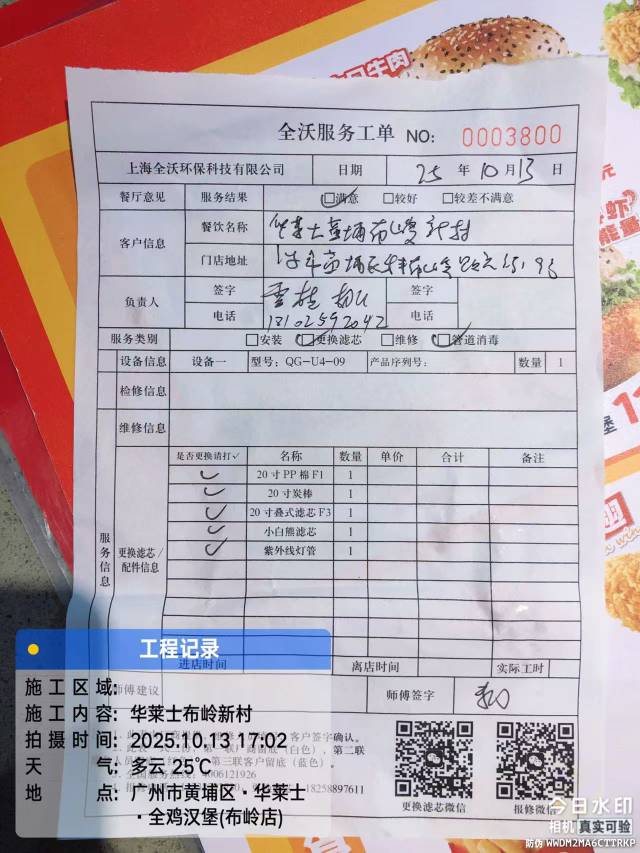 只牛肉
全沃服务工单 NO: 0003800
上海全沃环保科技有限公司 日期 25 年 10 月 13 日
餐厅意见 服务结果 ☑满意 □较好 □较差不满意
客户信息 餐饮名称 华莱士黄埔布岭新村
门店地址
负责人 签字 签字
电话 18102592042 电话
服务类别 □安装 ☑更换滤芯 □维修 ☑管道消毒
设备信息 设备一 型号: QG-U4-09 产品序列号: 数量 1
检修信息
维修信息
服务信息
更换滤芯/配件信息
是否更换请打✓ 名称 数量 单价 合计 备注
✓ 20寸PP棉F1 1
✓ 20寸炭棒 1
✓ 20寸叠式滤芯F3 1
✓ 小白熊滤芯 1
✓ 紫外线灯管 1
进店时间 离店时间 实际工时
师傅建议 师傅签字
客户签字确认。
(白色)，第二联
第三联客户留底（蓝色）。
4006121926
18258897611
更换滤芯微信 报修微信
工程记录
施工区域:
施工内容: 华莱士布岭新村
拍摄时间: 2025.10.13 17:02
天气: 多云 25℃
地点: 广州市黄埔区·华莱士
·全鸡汉堡(布岭店)
今日水印
相机 真实可验
防伪 WWDM2MA6CTTRKP